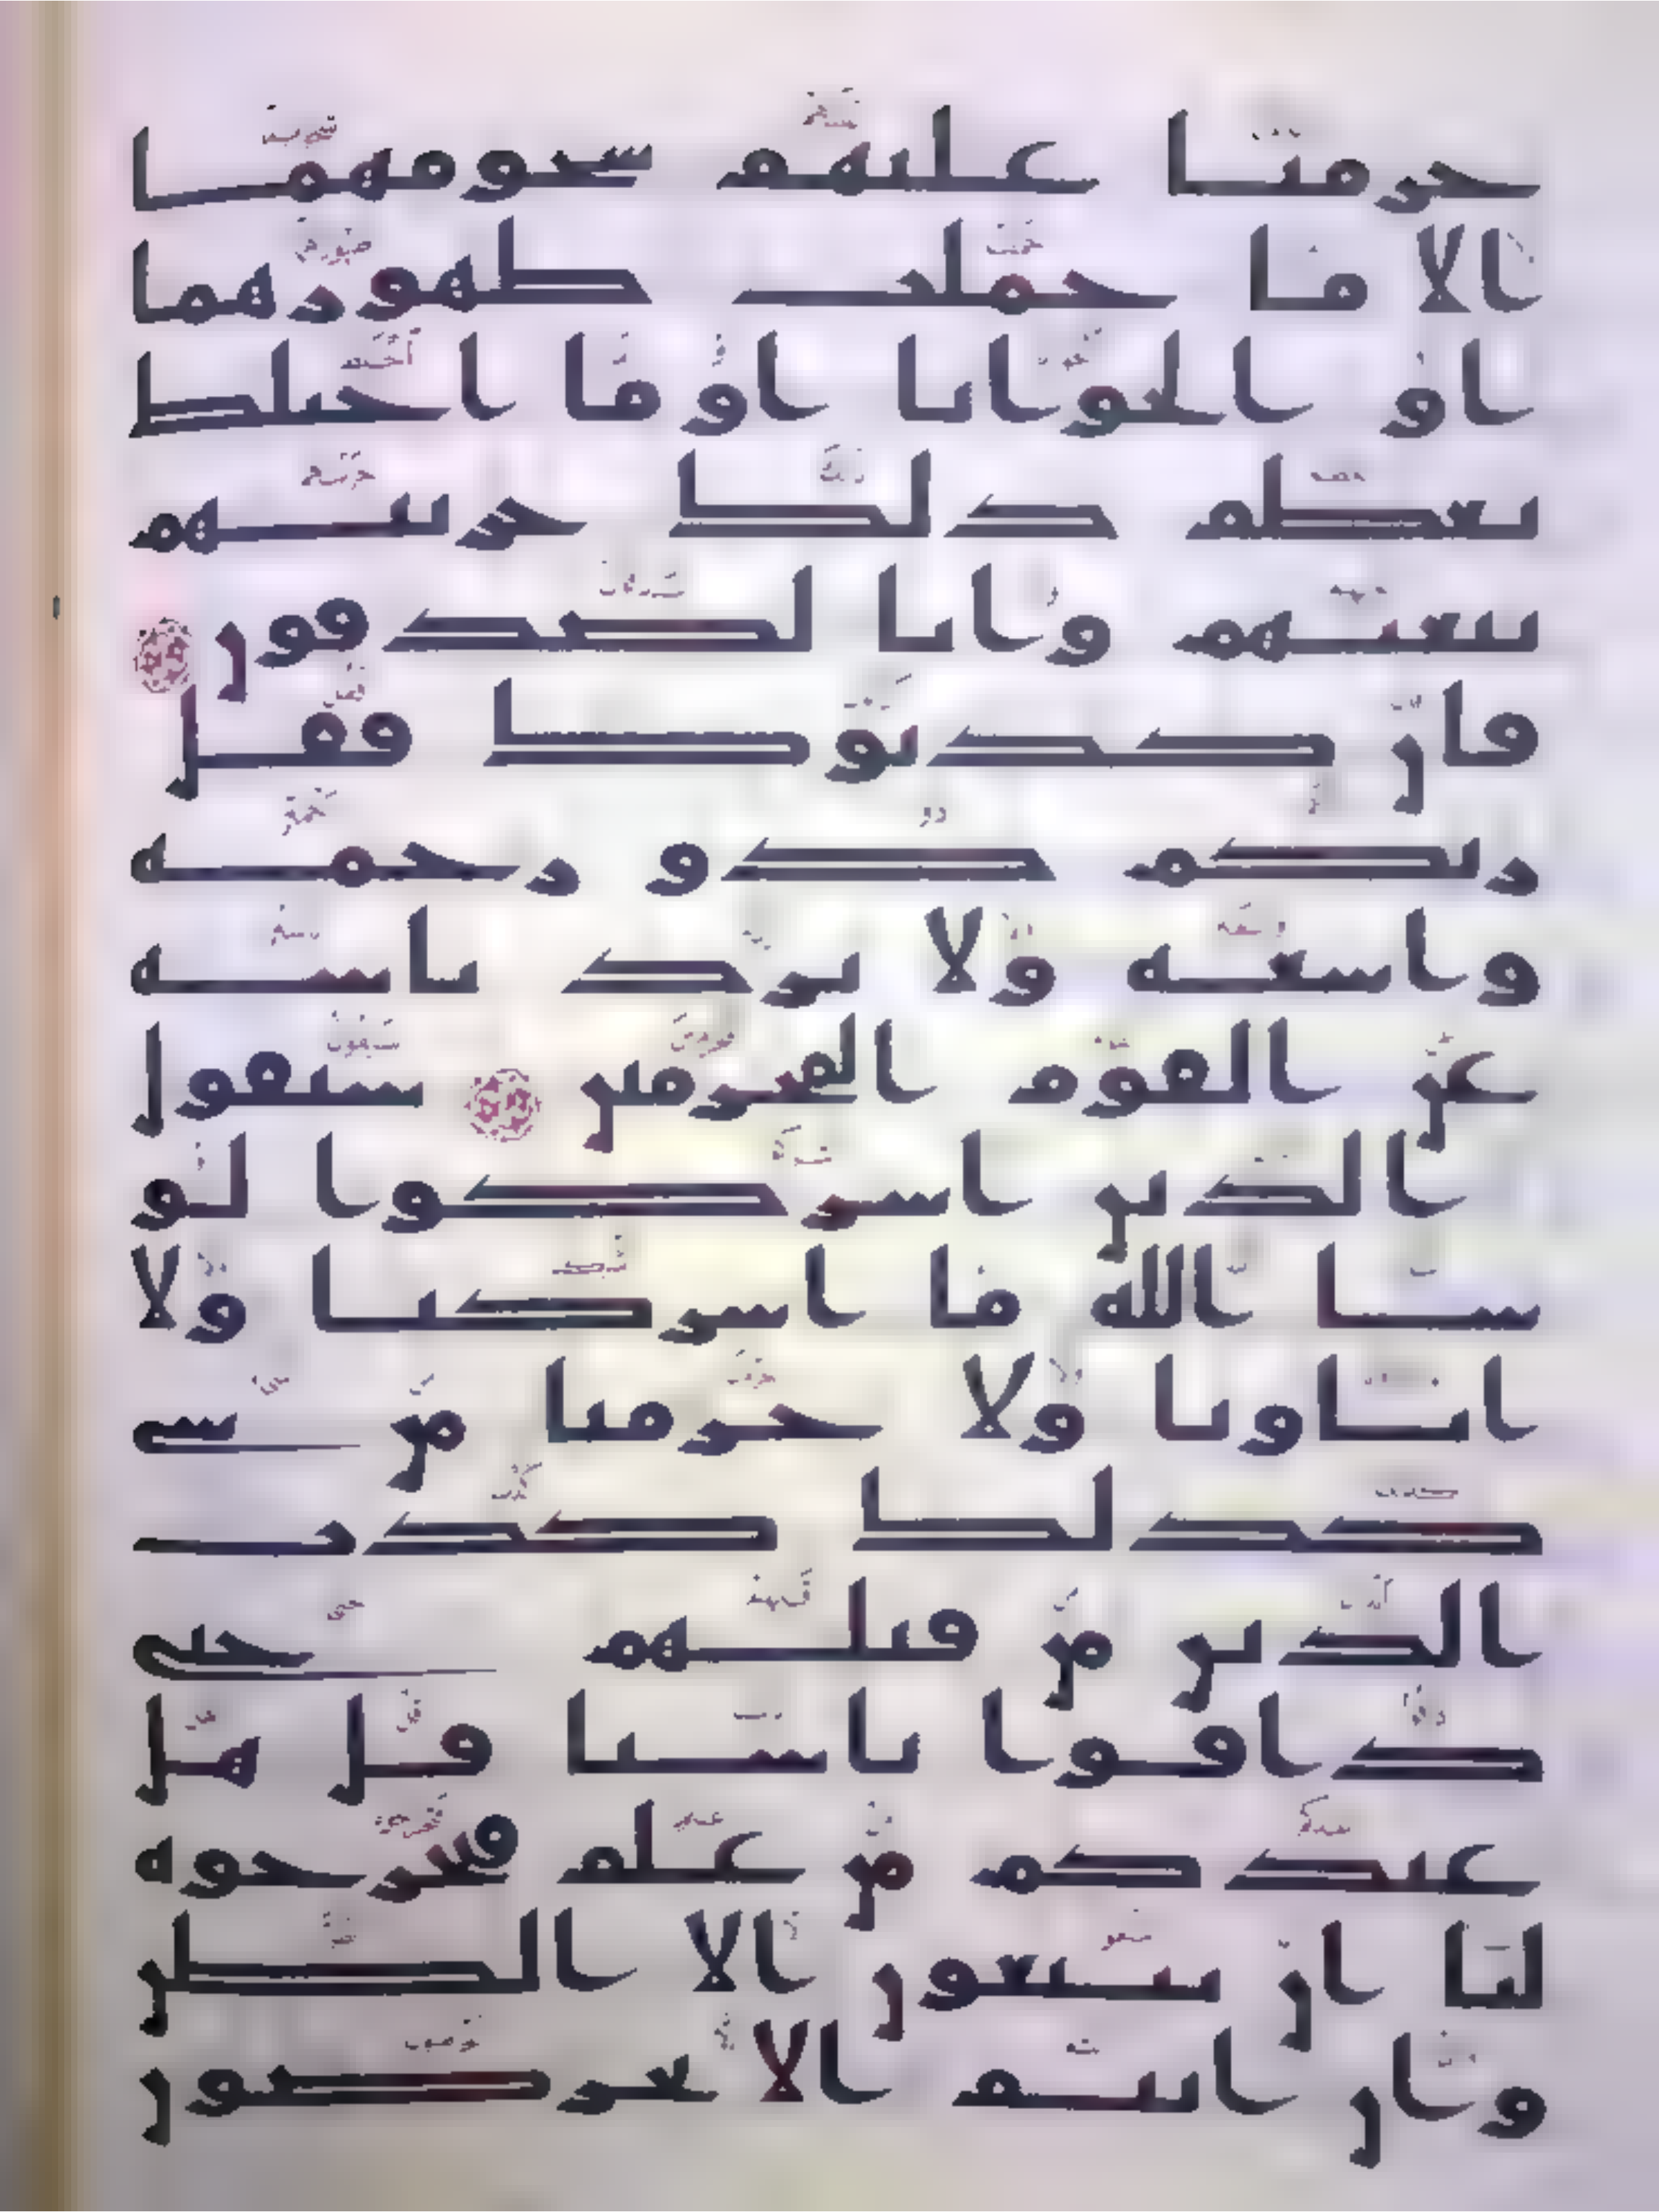 حرمنا عليهم شحومهما
الا ما حملت ظهورهما
او الحوايا او ما اختلط
بعظم ذلك جزينهم
ببغيهم وانا لصدقون
فان كذبوك فقل
ربكم ذو رحمة
واسعة ولا يرد باسه
عن القوم المجرمين سيقول
الذين اشركوا لو
شا الله ما اشركنا ولا
اباونا ولا حرمنا من شي
كذلك كذب
الذين من قبلهم حتى
ذاقوا باسنا قل هل
عندكم من علم فتخرجوه
لنا ان تتبعون الا الظن
وان انتم الا تخرصون